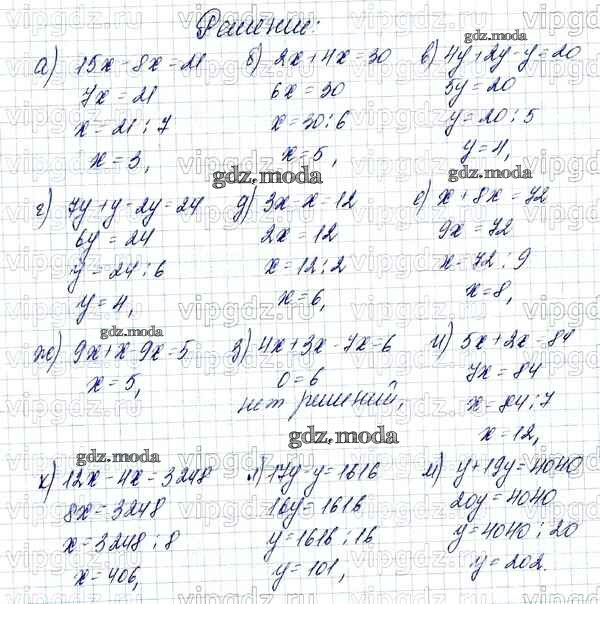 Решение:
а) 15x - 8x = 21
7x = 21
x = 21 : 7
x = 3,
б) 2x + 4x = 30
6x = 30
x = 30 : 6
x = 5,
в) 4y + 2y - y = 20
5y = 20
y = 20 : 5
y = 4,
г) 7y + y - 2y = 24
6y = 24
y = 24 : 6
y = 4,
д) 3x - x = 12
2x = 12
x = 12 : 2
x = 6,
е) x + 8x = 72
9x = 72
x = 72 : 9
x = 8,
ж) 9x + x - 9x = 5
x = 5,
з) 4x + 3x - 7x = 6
0 = 6
нет решений,
и) 5x + 2x = 84
7x = 84
x = 84 : 7
x = 12,
к) 12x - 4x = 3248
8x = 3248
x = 3248 : 8
x = 406,
л) 17y - y = 1616
16y = 1616
y = 1616 : 16
y = 101,
м) y + 19y = 4040
20y = 4040
y = 4040 : 20
y = 202.
gdz.moda
vipgdz.ru